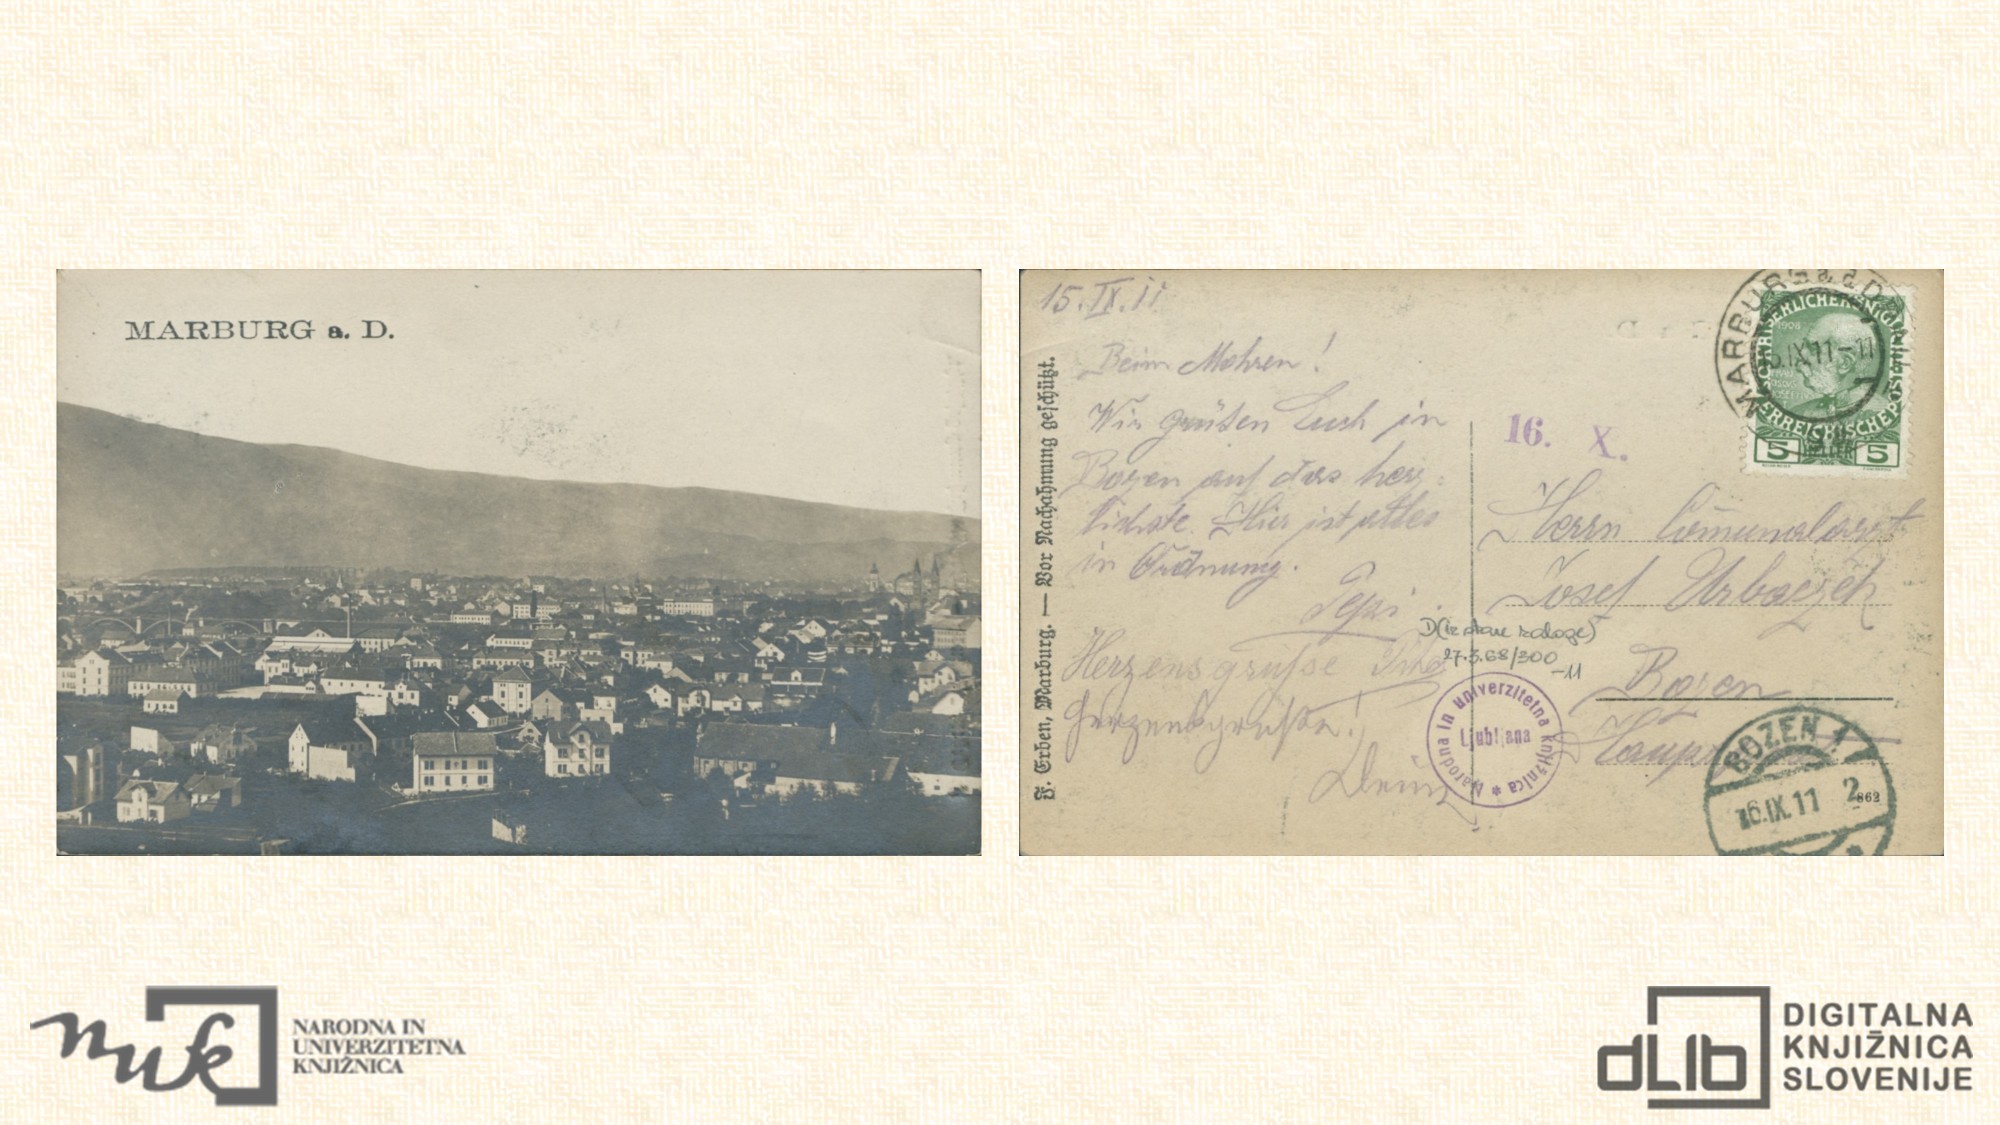 MARBURG a. D.
15. IX. 11
Beim Mohren!
Wir grüßen Euch in
Bozen auf das herz-
lichste. Hier ist alles
in Ordnung.
Pepi.
Herzensgrüße
Herzensgrüße!
F. Erben, Marburg. — Vor Nachahmung geschützt.
MARBURG a. d. D
IX 11
KAISERLICHE KÖNIGLICHE
ÖSTERREICHISCHE POST
1908
5 HELLER 5
16. X.
Herrn Comunalarzt
Josef Urbaczek
Bozen
D (iz stare zaloge)
27.3.68/300
-11
Narodna in univerzitetna knjižnica *
Ljubljana
BOZEN 1
16. IX. 11 2
862
nuk
NARODNA IN
UNIVERZITETNA
KNJIŽNICA
dLib
DIGITALNA
KNJIŽNICA
SLOVENIJE